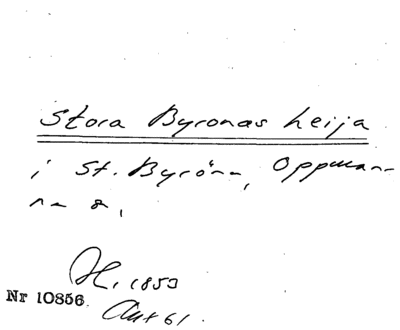 Stora Byrönas heija
i St. Byrön, Oppman-
na s.
H, 1853
Nr 10856.
Ant 61.